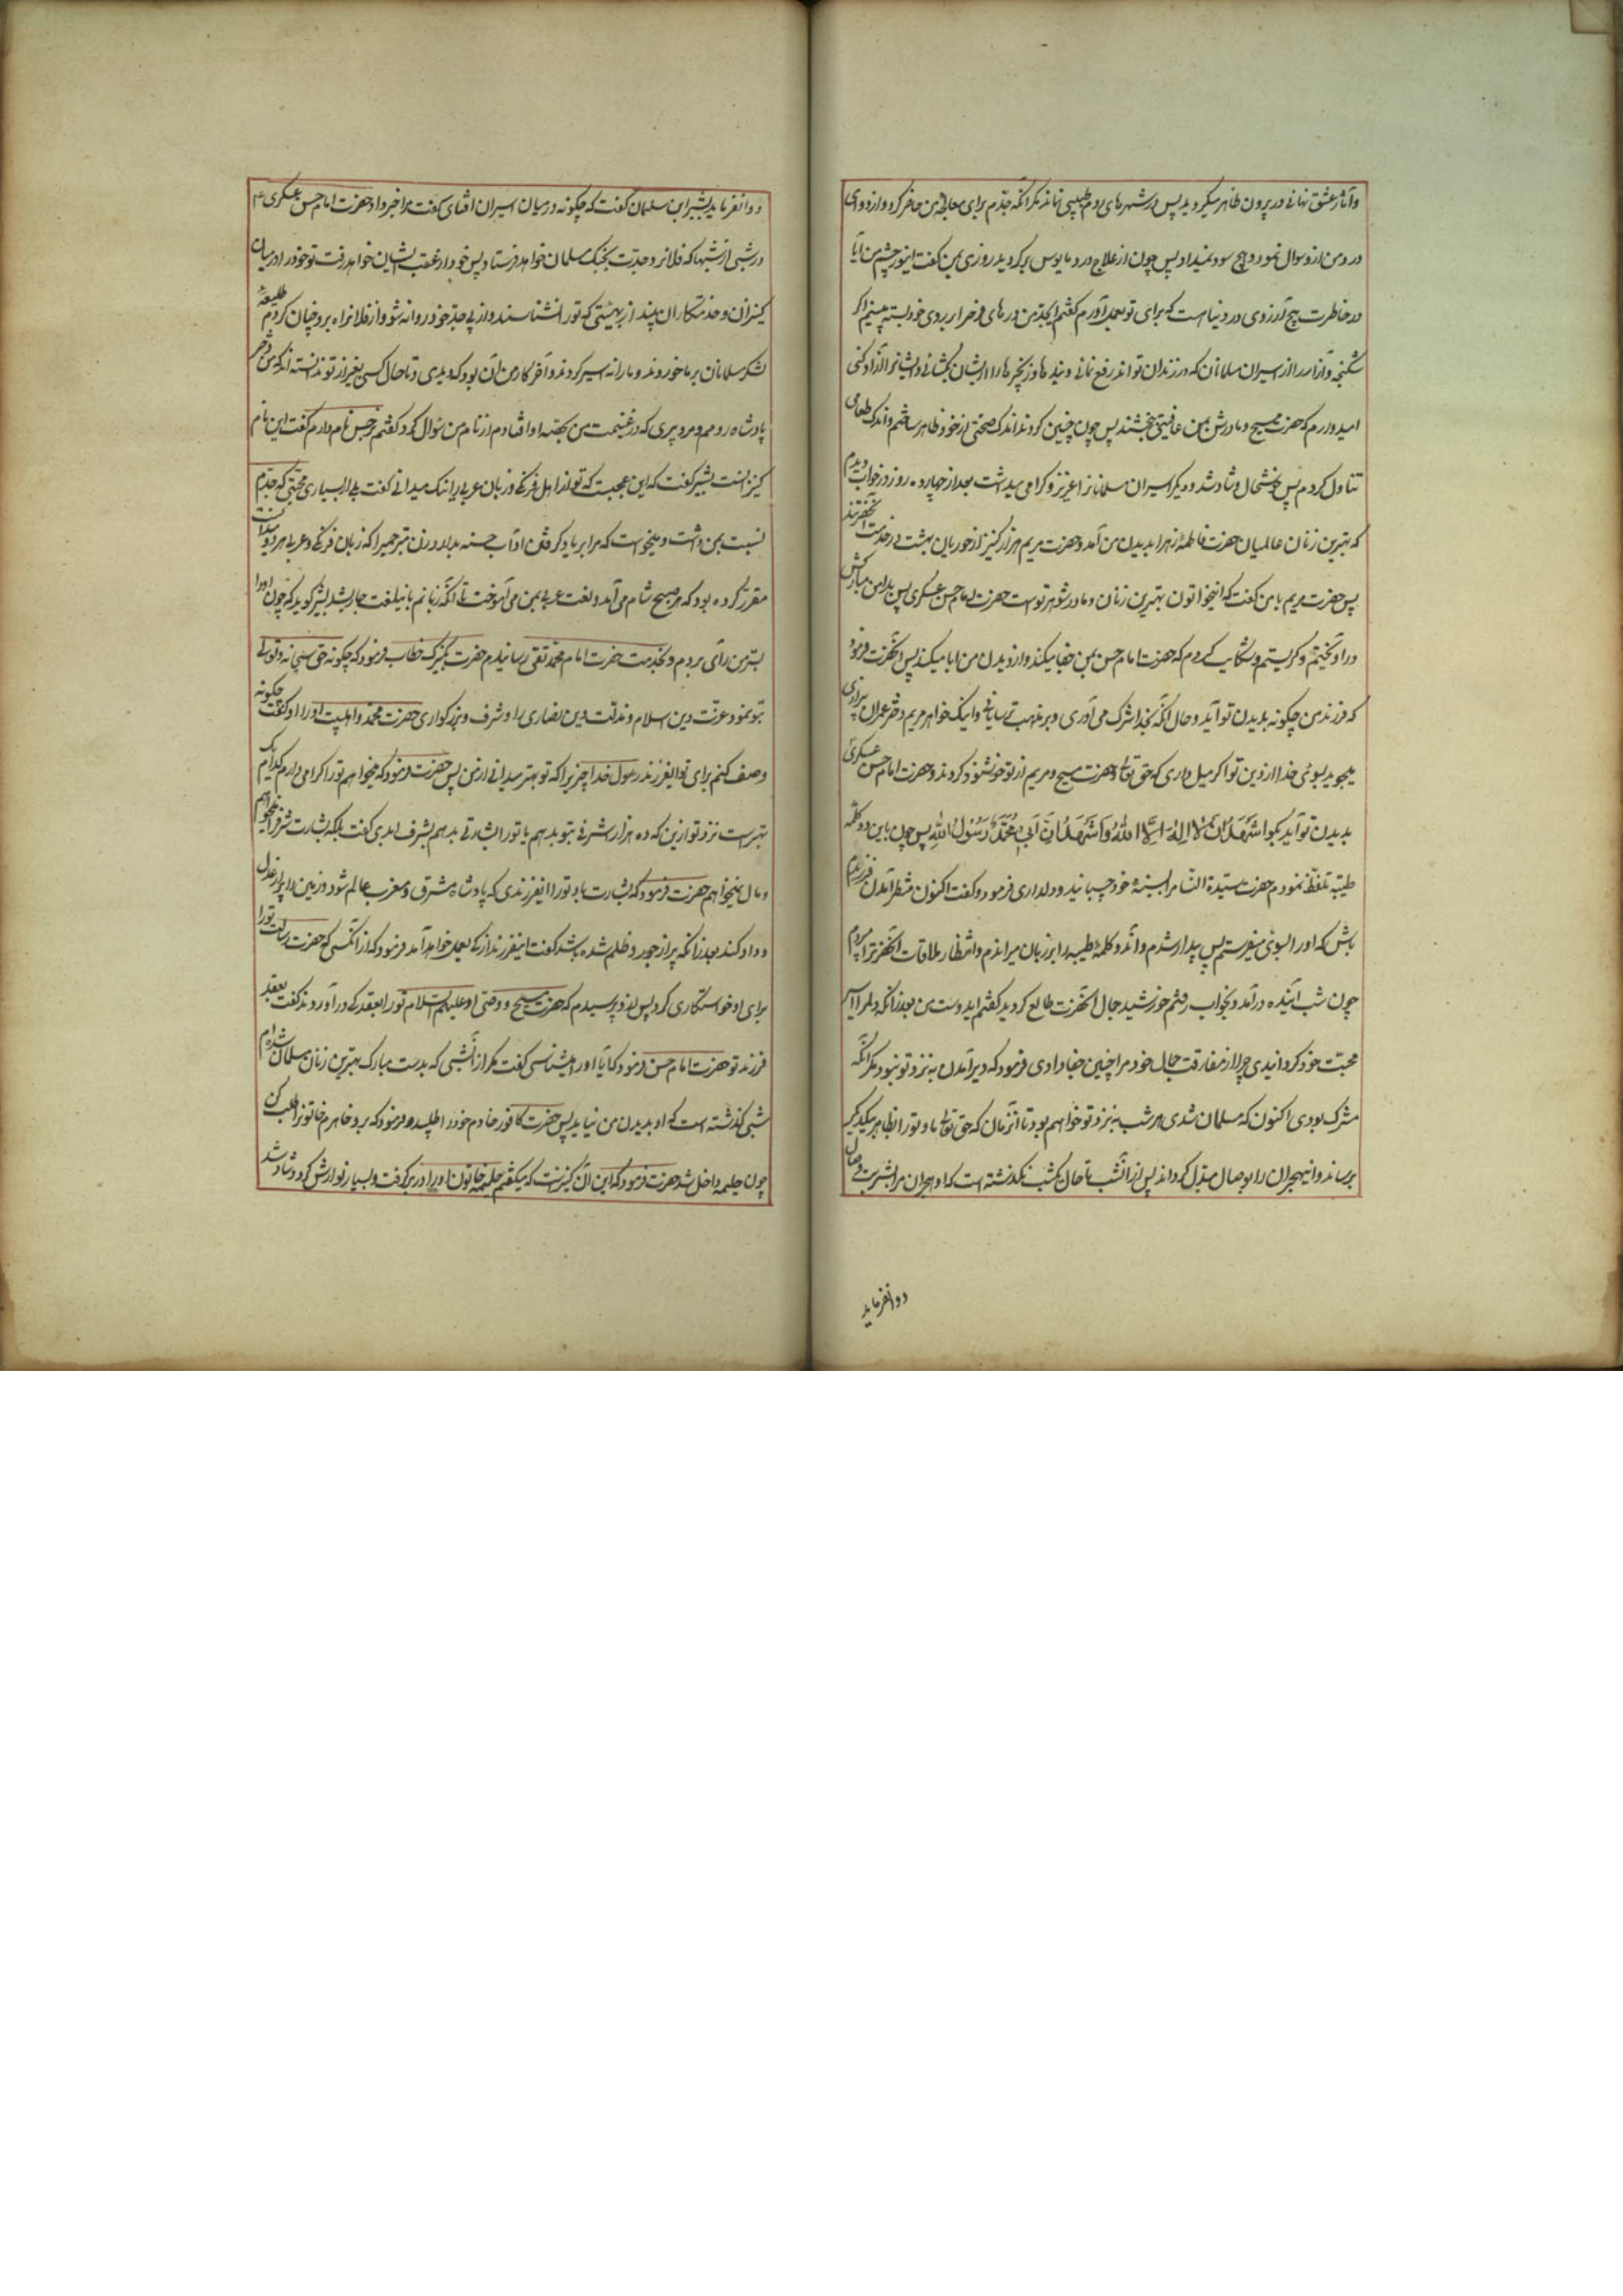 وآثار عشق نهانی در بیرون ظاهر میگردید پس در شهرهای روم طبیبی نماند مگر آنکه جدّم برای معالجهٔ من حاضر کرد و از دوای
درد من ازو سوال نمود و هیچ سود نمیداد پس چون از علاج درد مایوس گردید روزی بمن گفت ای نور چشم من آیا
در خاطرت هیچ آرزوی در دنیا هست که برای تو بعمل آورم گفتم ای جدّ من درهای فرح را بر روی خود بسته میبینم اگر
شکنجه و آزار را از اسیران مسلمانان که در زندان تو اند رفع نمائی و بندها و زنجیرها را از ایشان بگشائی و ایشانرا آزاد کنی
امیدوارم که حضرت مسیح و مادرش بمن عافیتی بخشند پس چون چنین کردند اندک صحتی از خود ظاهر ساختم و اندک طعامی
تناول کردم پس خوشحال و شاد شد و دیگر اسیران مسلمانانرا عزیز و کرامی میداشت بعد از چهارده روز در خواب دیدم
که بهترین زنان عالمیان حضرت فاطمهٔ زهرا بدیدن من آمد و حضرت مریم با هزار کنیز از حوریان بهشت در خدمت آنحضرتند
پس حضرت مریم با من گفت که این خاتون بهترین زنان و مادر شوهر توست حضرت امام حسن عسکری پس بدامن مبارکش
در آویختم و گریستم و شکایت کردم که حضرت امام حسن بمن جفا میکند و از دیدن من ابا میکند پس آنحضرت فرمود
که فرزند من چگونه بدیدن تو آید و حال آنکه بخدا شرک می آوری و بر مذهب ترسایانی و اینک خواهر مریم دختر عمران بیزاری
میجوید بسوی خدا از دین تو اگر میل داری که حق تعالی و حضرت مسیح و مریم از تو خوشنود گردند و حضرت امام حسن عسکری
بدیدن تو آید بگو اَشْهَدُ اَنْ لا اِلهَ اِلَّا اللهُ وَاَشْهَدُ اَنَّ اَبی مُحَمَّدٌ رَسُولُ اللهِ پس چون باین دو کلمه
طیّبه تلفّظ نمودم حضرت سیّدة النساء مرا بسینهٔ خود چسبانید و دلداری فرمود و گفت اکنون منتظر آمدن فرزندم
باش که او را بسوی تو میفرستم پس بیدار شدم و آندو کلمهٔ طیبه را بر زبان میراندم و انتظار ملاقات آنحضرترا میبردم
چون شب آینده در آمد و بخواب رفتم خورشید جمال آنحضرت طالع گردید گفتم ای دوست من بعد از آنکه دلمرا اسیر
محبّت خود گردانیدی چرا از مفارقت جمال خود مرا چنین جفا دادی فرمود که دیر آمدن به نزد تو نبود مگر آنکه
مشرک بودی اکنون که مسلمان شدی هر شب به نزد تو خواهم بود تا آنزمان که حق تعالی ما و تو را بظاهر بیکدیگر
برساند و این هجران را بوصال مبدّل گرداند پس از آنشب تا حال یکشب نگذشته است که او هجران مرا بشربت وصال
دوا نفرماید
دوا نفرماید بشیر ابن سلمان گفت که چگونه در میان اسیران افتادی گفت مرا خبر داد حضرت امام حسن عسکری ع
در شبی از شبها که فلان روز جدّت بجنگ مسلمانان خواهد فرستاد پس خود از عقب ایشان خواهد رفت تو خود را در میان
کنیزان و خدمتکاران بینداز بهیئتی که تو را نشناسند و از پی جدّ خود روانه شو و از فلان راه برو چنان کردم طلیعهٔ
لشکر مسلمانان بر ما خوردند و ما را اسیر کردند و آخر کار من آن بود که دیدی و تا حال کسی بغیر از تو ندانسته است که من دختر
پادشاه رومم و مرد پیری که در غنیمت من بحصّه او افتادم از نام من سؤال کرد گفتم نرجس نام دارم گفت این نام
کنیزانست بشیر گفت که این عجیبست که تو از اهل فرنگی و زبان عربی را نیک میدانی گفت بلی از بسیاری محبّتی که جدّم
نسبت بمن داشت و میخواست که مرا بر یاد گرفتن آداب حسنه بدارد زن مترجمیرا که زبان فرنگی و عربی هر دو میدانست
مقرّر کرده بود که هر صبح و شام می آمد و لغت عربی بمن می آموخت تا آنکه زبانم باین لغت جاری شد بشیر گوید که چون او را
بسرّ من رأی بردم و بخدمت حضرت امام محمد تقی رسانیدم حضرت بکنیزک خطاب فرمود که چگونه حق سبحانه و تعالی
بتو نمود عزّت دین اسلام و مذلّت دین نصاری را و شرف و بزرگواری حضرت محمد و اهلبیت او را او گفت چگونه
وصف کنم برای تو ای فرزند رسول خدا چیزیرا که تو بهتر میدانی از من پس حضرت فرمود که میخواهم تو را گرامی دارم کدام یک
بهتر است نزد تو ازین که ده هزار اشرفی بتو بدهم یا تو را بشارتی بدهم بشرف ابدی گفت بلکه بشارت شرفرا میخواهم
و مال نمیخواهم حضرت فرمود که بشارت باد تو را به فرزندی که پادشاه مشرق و مغرب عالم شود و زمین را پر از عدل
و داد کند بعد از آنکه پر از جور و ظلم شده باشد گفت این فرزند از که بعمل خواهد آمد فرمود که از آنکسی که حضرت رسالت تو را
برای او خواستگاری کرد پس ازو پرسیدم که حضرت مسیح و وصّی او علیهم السلام تو را بعقد که در آوردند گفت بعقد
فرزند تو حضرت امام حسن فرمود که آیا او را میشناسی گفت مگر از آنشبی که بدست مبارک بهترین زنان مسلمان شده ام
شبی گذشته است که او بدیدن من نیاید پس حضرت کافور خادم خود را طلبید و فرمود که برو خواهرم خاتونرا طلب کن
چون حلیمه داخل شد حضرت فرمود که این آن کنیزست که میگفتم حلیمه خاتون او را در بر گرفت و بسیار نوازش کرد و شاد شد